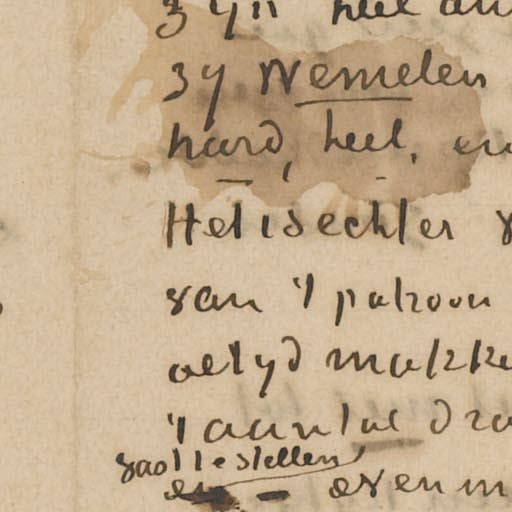 zyn heel
zy Wemelen
hard, heel, en
Het is echter v
van 't patroon
altyd makke
't aantal dra
vast te stellen
en - even m